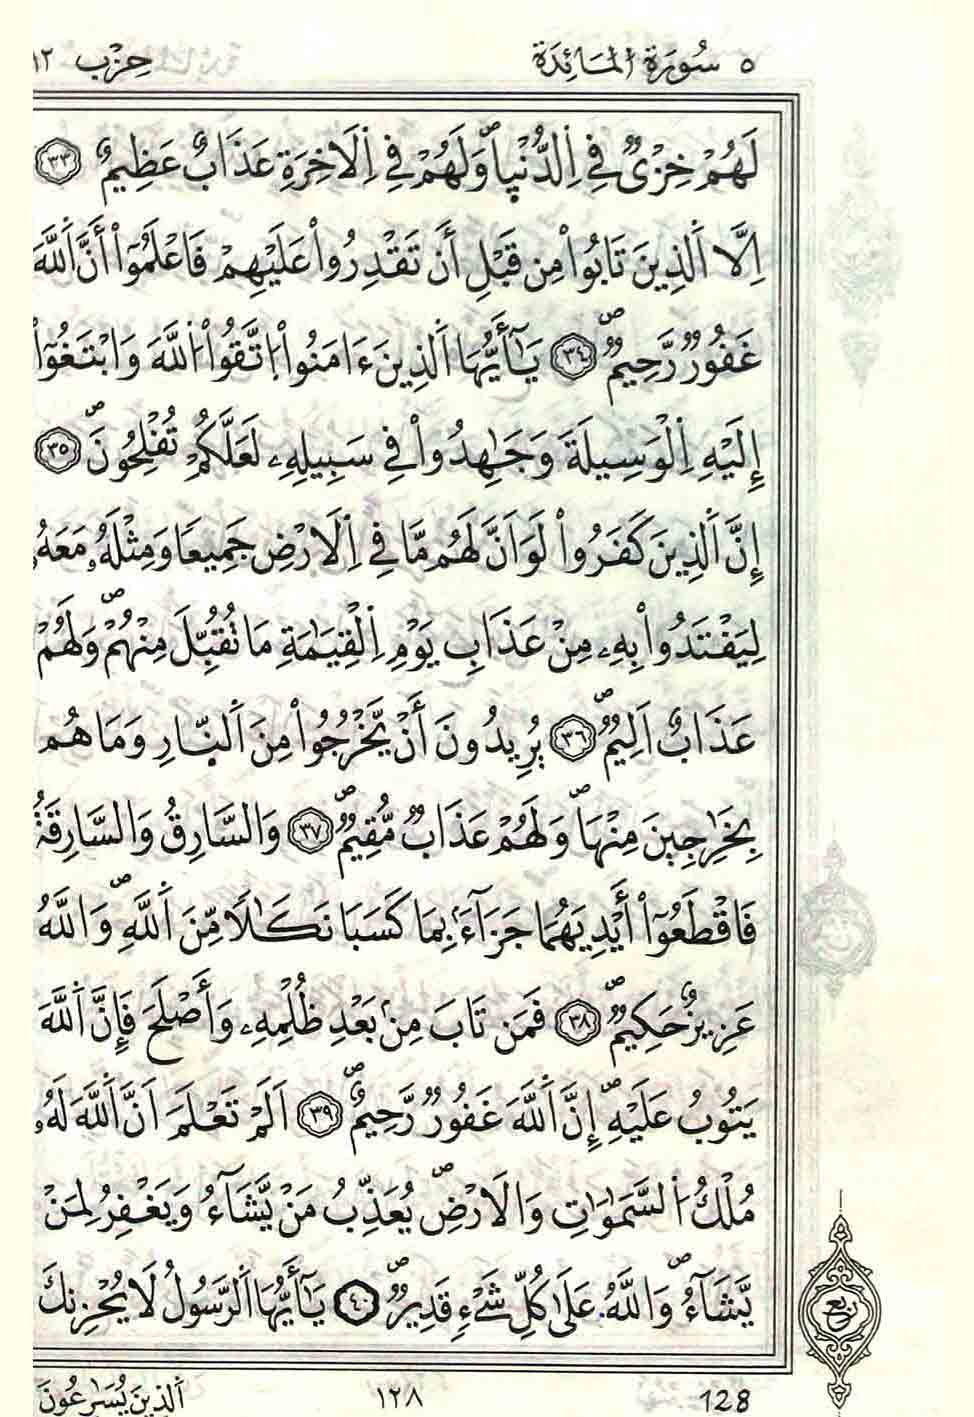 ٥ سُورَةُ الْمَائِدَة حِزْب ١٢
لَهُمْ خِزْيٌ فِي اِ۬لدُّنْيَاۖ وَلَهُمْ فِي اِ۬لَاخِرَةِ عَذَابٌ عَظِيمٌ ٣٣
اِلَّا اَ۬لذِينَ تَابُواْ مِن قَبْلِ أَن تَقْدِرُواْ عَلَيْهِمْ فَاعْلَمُوٓاْ أَنَّ اَ۬للَّهَ
غَفُورٞ رَّحِيمٞۖ ٣٤ يَٰٓأَيُّهَا اَ۬لذِينَ ءَامَنُواْ اُ۪تَّقُواْ اُ۬للَّهَ وَابْتَغُوٓاْ
إِلَيْهِ اِ۬لْوَسِيلَةَ وَجَٰهِدُواْ فِي سَبِيلِهِۦ لَعَلَّكُمْ تُفْلِحُونَۖ ٣٥
إِنَّ اَ۬لذِينَ كَفَرُواْ لَوَ اَنَّ لَهُم مَّا فِي اِ۬لَارْضِ جَمِيعاٗ وَمِثْلَهُۥ مَعَهُۥ
لِيَفْتَدُواْ بِهِۦ مِنْ عَذَابِ يَوْمِ اِ۬لْقِيَٰمَةِ مَا تُقُبِّلَ مِنْهُمْۖ وَلَهُمْ
عَذَابٌ اَلِيمٞۖ ٣٦ يُرِيدُونَ أَنْ يَّخْرُجُواْ مِنَ اَ۬لنّ۪ارِ وَمَا هُم
بِخَٰرِجِينَ مِنْهَاۖ وَلَهُمْ عَذَابٞ مُّقِيمٞۖ ٣٧ وَالسَّارِقُ وَالسَّارِقَةُ
فَاقْطَعُوٓاْ أَيْدِيَهُمَا جَزَآءَۢ بِمَا كَسَبَا نَكَٰلاٗ مِّنَ اَ۬للَّهِۖ وَاللَّهُ
عَزِيزٌ حَكِيمٞۖ ٣٨ فَمَن تَابَ مِنۢ بَعْدِ ظُلْمِهِۦ وَأَصْلَحَ فَإِنَّ اَ۬للَّهَ
يَتُوبُ عَلَيْهِۖ إِنَّ اَ۬للَّهَ غَفُورٞ رَّحِيمٌۖ ٣٩ اَلَمْ تَعْلَمَ اَنَّ اَ۬للَّهَ لَهُۥ
مُلْكُ اُ۬لسَّمَٰوَٰتِ وَالَارْضِۖ يُعَذِّبُ مَنْ يَّشَآءُ وَيَغْفِرُ لِمَنْ
يَّشَآءُۖ وَاللَّهُ عَلَىٰ كُلِّ شَےْءٖ قَدِيرٞۖ ٤٠ يَٰٓأَيُّهَا اَ۬لرَّسُولُ لَا يُحْزِنكَ
ربع
اَ۬لذِينَ يُسَٰرِعُونَ ١٢٨ 128